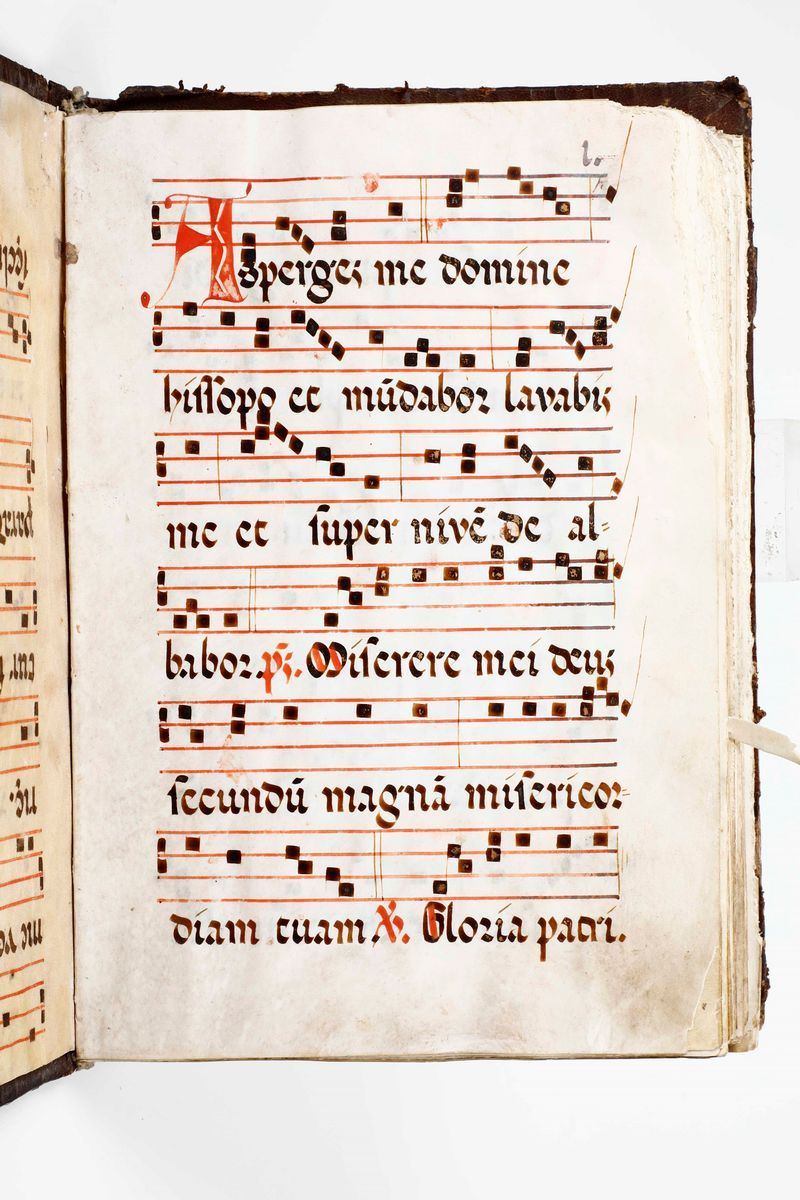 1.
Asperges me domine
hissopo et mūdabor lavabis
me et super nivē de al-
babor. ps. Miserere mei deus
secundū magnā misericor-
diam tuam ℣. Gloria patri.